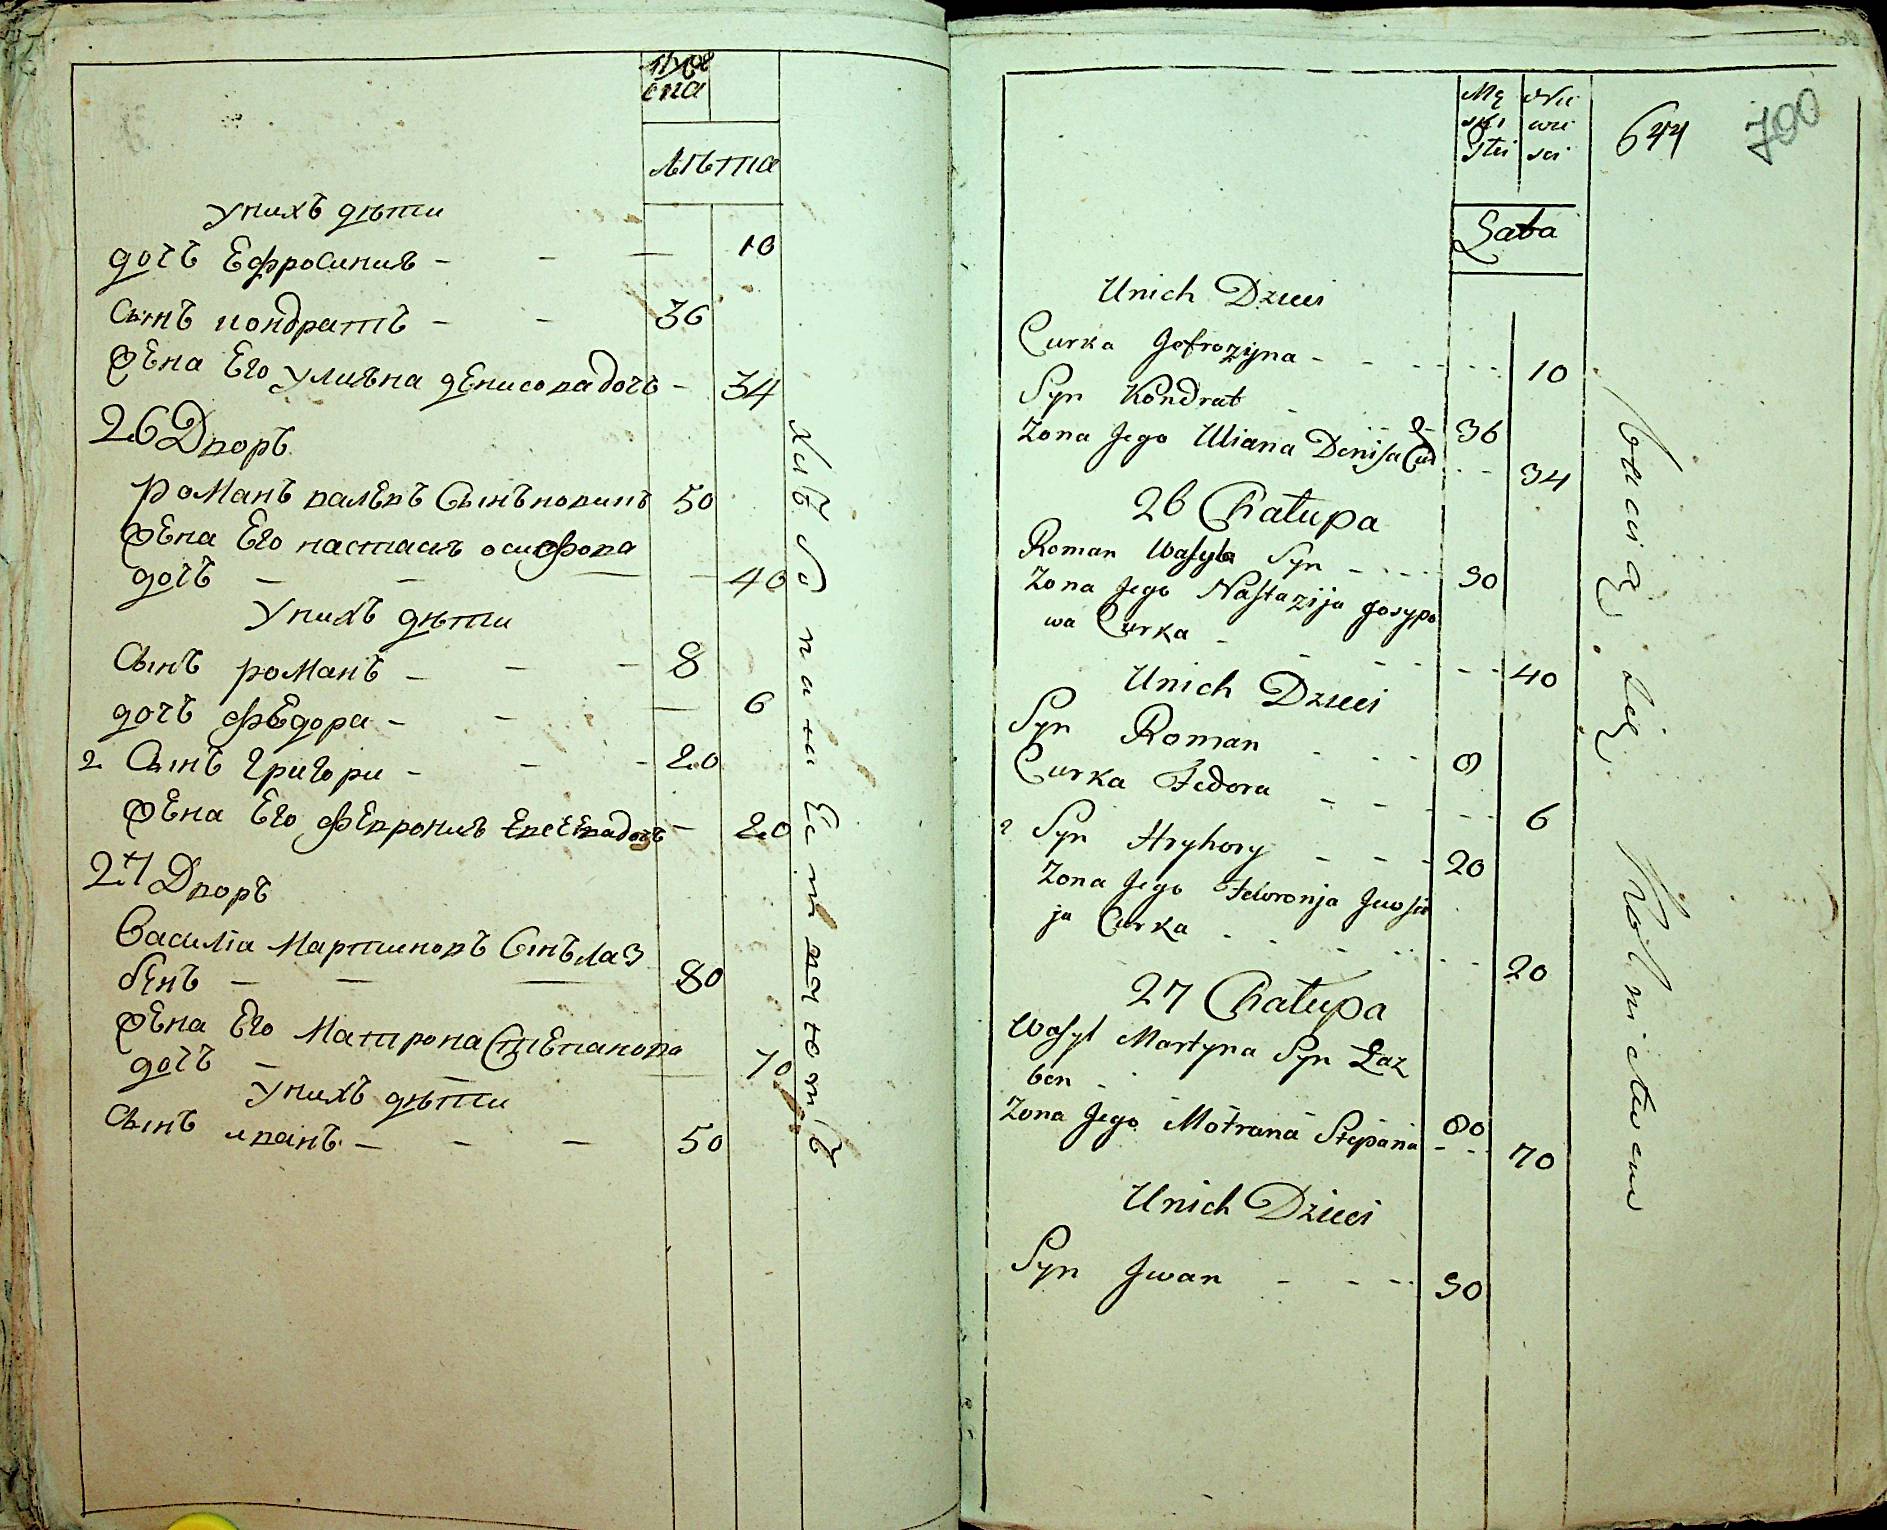 лѣта
У нихъ дѣти
дочъ Ефросиния - - — 10
Сынъ кондратъ - - 36
жена Его улияна денисова дочъ - 34
26 Дворъ
романъ валевъ Сынъ новикъ 50
жена Его настасия осифова
дочъ — - — - 40
У нихъ дѣти
Сынъ романъ - - - 8
дочъ федора - - — 6
2 Сынъ григори - - - 20
жена Его феврония дочъ - 20
27 Дворъ
Василiа Мартиновъ Снъ лаз
бенъ — — — 80
жена Его Матрона Степанова
дочъ — — — 70
У нихъ дѣти
Сынъ иванъ - - — 50
644
700
Mę Nie
ski wie
Stei sci
Łata
Unich Dzieci
Curka Jefrozyna - - - - - 10
Syn Kondrat - - - - 36
Zona Jego Uliana Denisa Cur - - 34
26 Chałupa
Roman Wasyla Syn - - - - 50
Zona Jego Nastazija Josypo
wa Curka - - - - - - 40
Unich Dzieci
Syn Roman - - - 8
Curka Fedora - - - - - 6
2 Syn Hryhory - - - - 20
Zona Jego Fewronja
ja Curka - - - - - - 20
27 Chałupa
Wasyl Martyna Syn Łaz
ben - - 80
Zona Jego Motrana Stepana - - - 70
Unich Dzieci
Syn Jwan - - - - 50
bawią się Rolnictwem